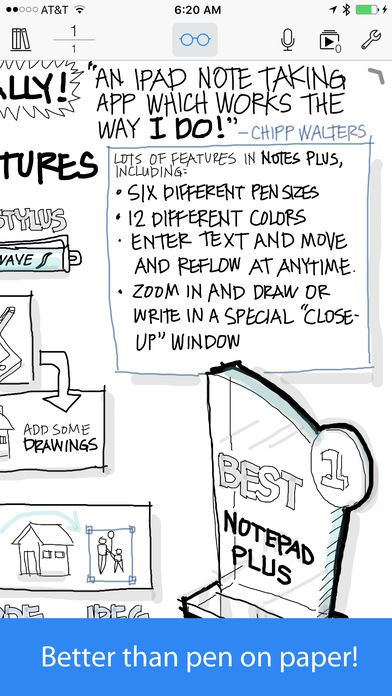 AT&T
6:20 AM
1
1
0
ALLY!
"AN IPAD NOTE TAKING
APP WHICH WORKS THE
WAY I DO!"
- CHIPP WALTERS
TURES
LOTS OF FEATURES IN NOTES PLUS,
INCLUDING:
• SIX DIFFERENT PEN SIZES
• 12 DIFFERENT COLORS
• ENTER TEXT AND MOVE
AND REFLOW AT ANYTIME.
• ZOOM IN AND DRAW OR
WRITE IN A SPECIAL "CLOSE-
UP" WINDOW
STYLUS
WAVE
ADD SOME
DRAWINGS
BEST
1
NOTEPAD
PLUS
JPEG
Better than pen on paper!